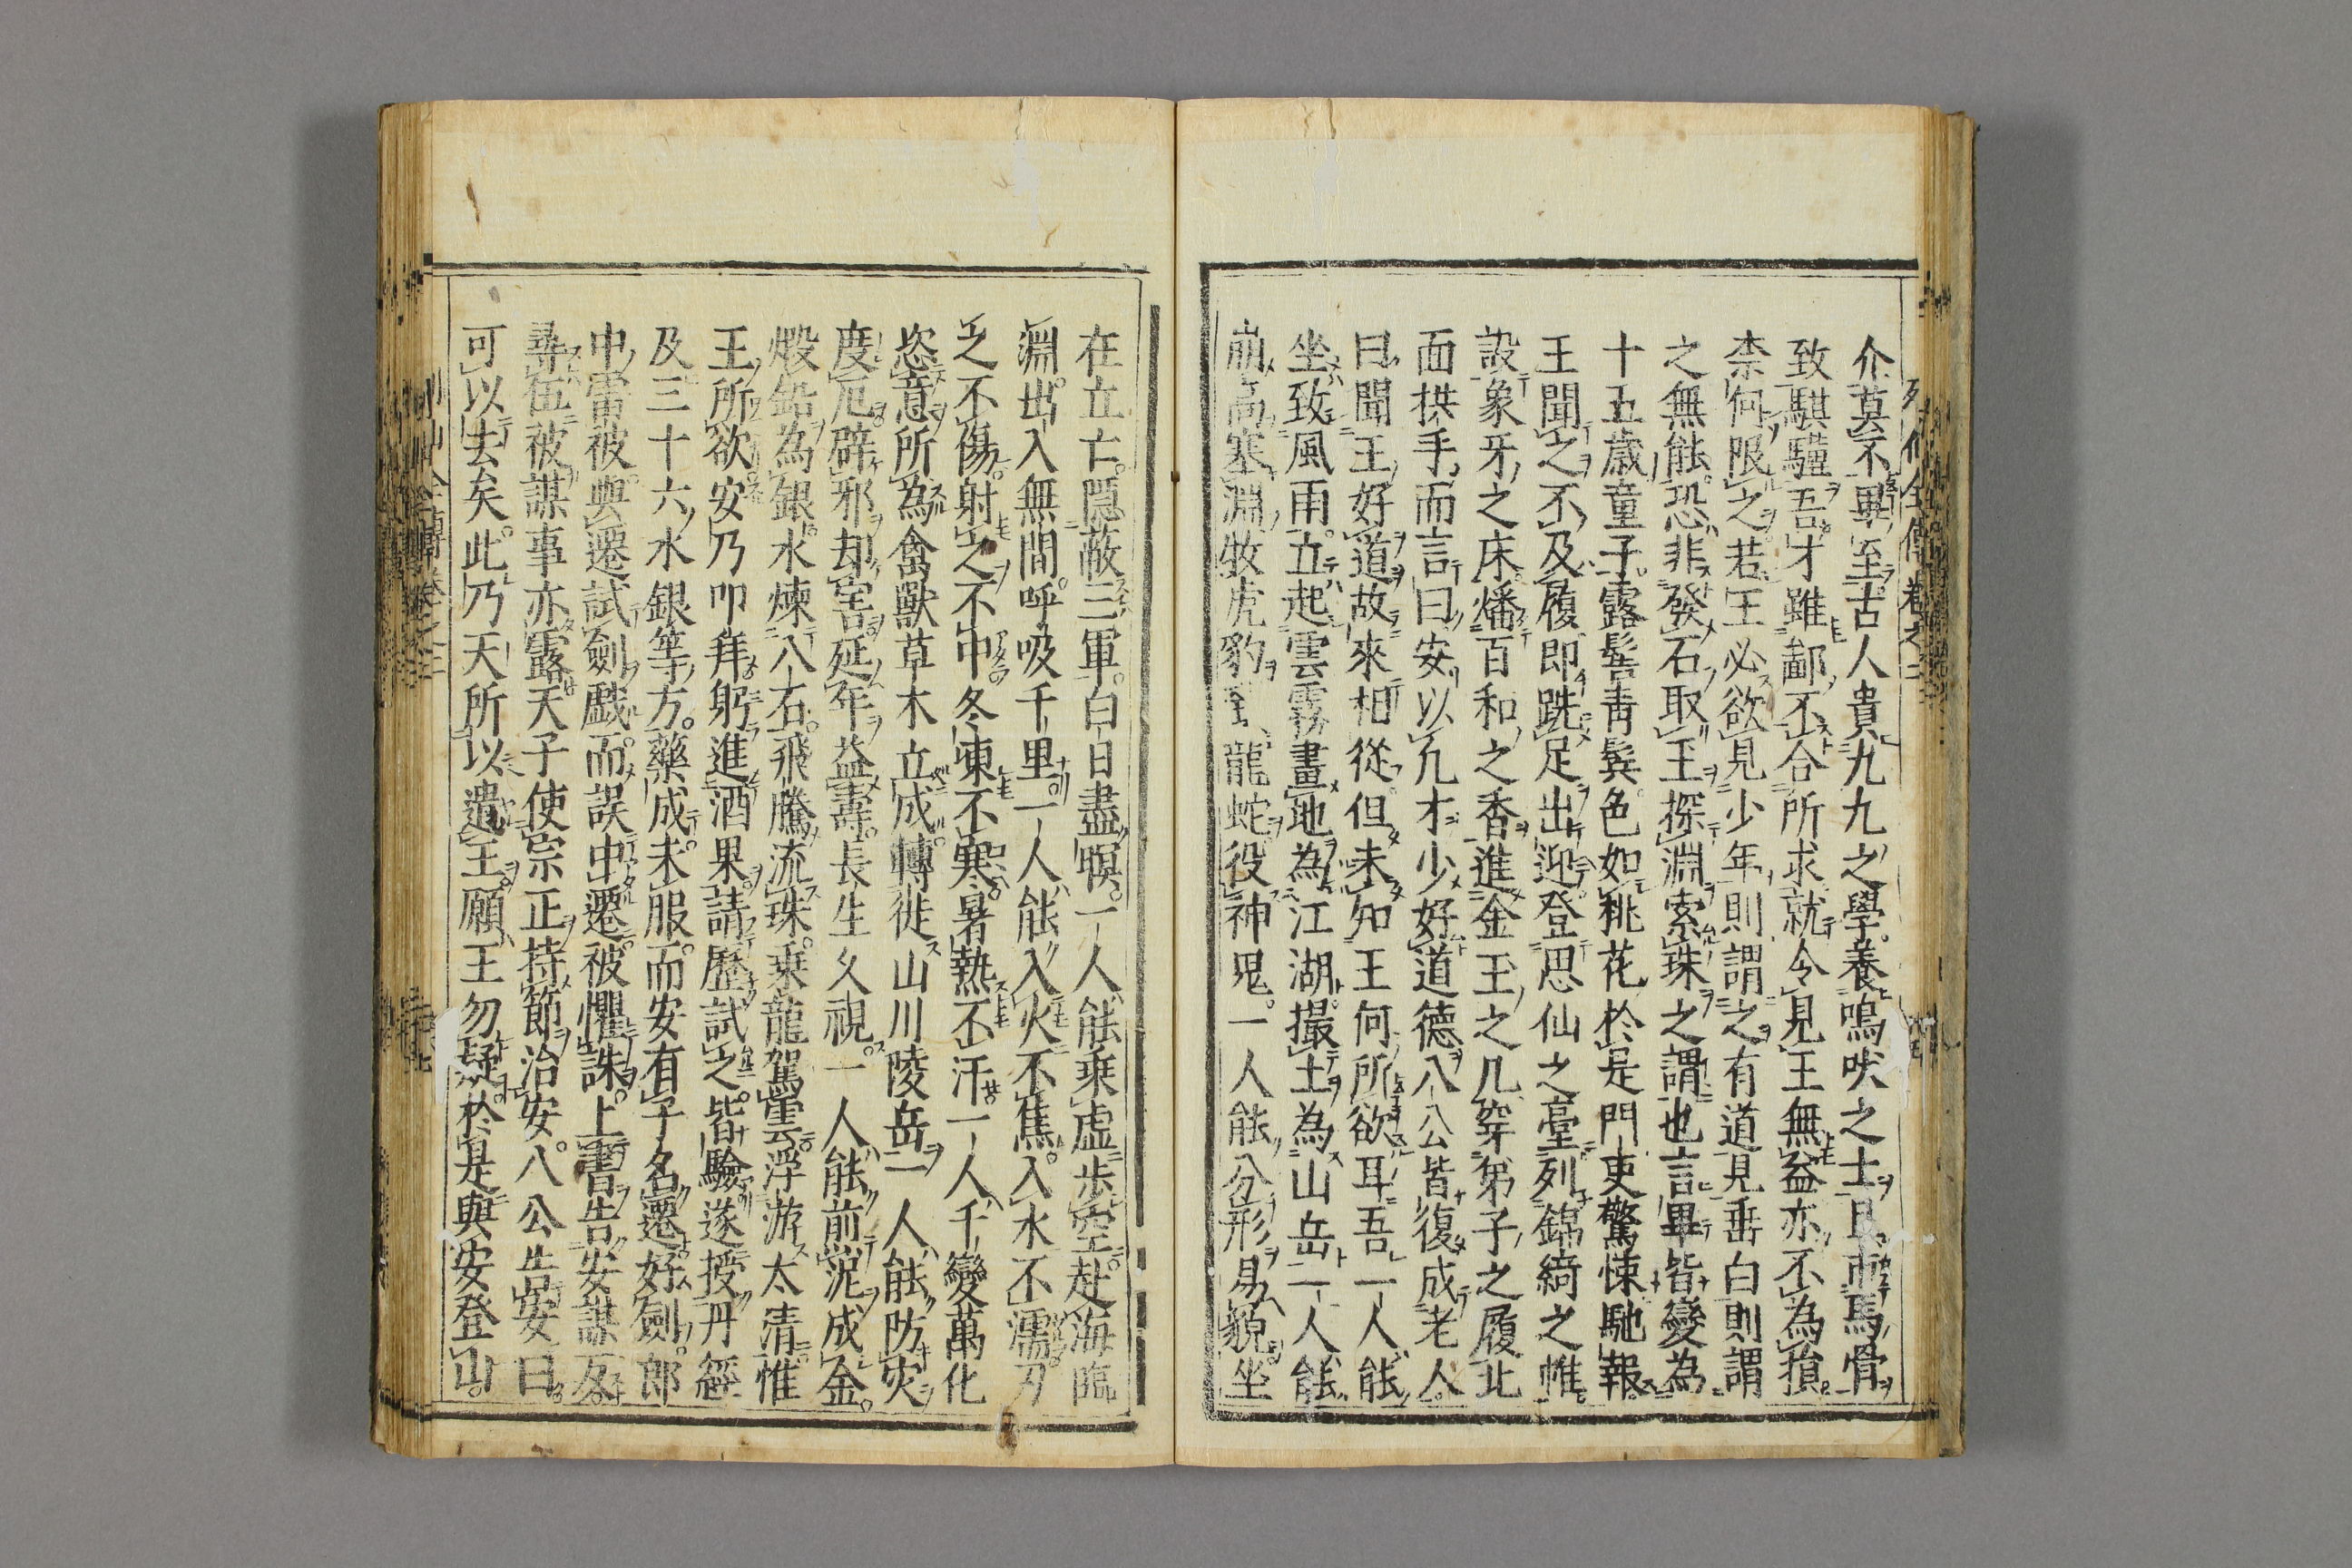 介莫不畢至古人貴九九之學養鳴吠之士且市馬骨
致騏驥吾才雖鄙不合所求就令見王無益亦不為損
柰何限之若王必欲見少年則謂之有道見垂白則謂
之無能恐非發石取玉探淵索珠之謂也言畢皆變為
十五歲童子露髻青鬂色如桃花於是門吏驚悚馳報
王聞之不及履即跣足出迎登思仙之臺列錦綺之帷
設象牙之床燔百和之香進金玉之几穿弟子之履北
面拱手而言曰安以凡才少好道德八公皆復成老人
曰聞王好道故來相從但未知王何所欲耳吾一人能
坐致風雨立起雲霧畫地為江湖撮土為山岳一人能
崩高塞淵牧虎豹致龍蛇役神鬼一人能分形易貌坐
在立亡隱蔽三軍白日盡暝一人能乘虛步空赴海臨
淵出入無間呼吸千里一人能入火不焦入水不濡刃
之不傷射之不中冬凍不寒暑熱不汗一人千變萬化
恣意所為禽獸草木立成轉徙山川陵岳一人能防灾
度厄辟邪却害延年益壽長生久視一人能前泥成金
煅鉛為銀水煉八石飛騰流珠乘龍駕雲浮游太清惟
王所欲安乃叩拜躬進酒果請歷試之皆驗遂授丹經
及三十六水銀等方藥成未服而安有子名遷好劍郎
中雷被與遷試劍戲而誤中遷被懼誅上書告安謀反
尋伍被謀事亦露天子使宗正持節治安八公告安曰
可以去矣此乃天所以遣王願王勿疑於是與安登山